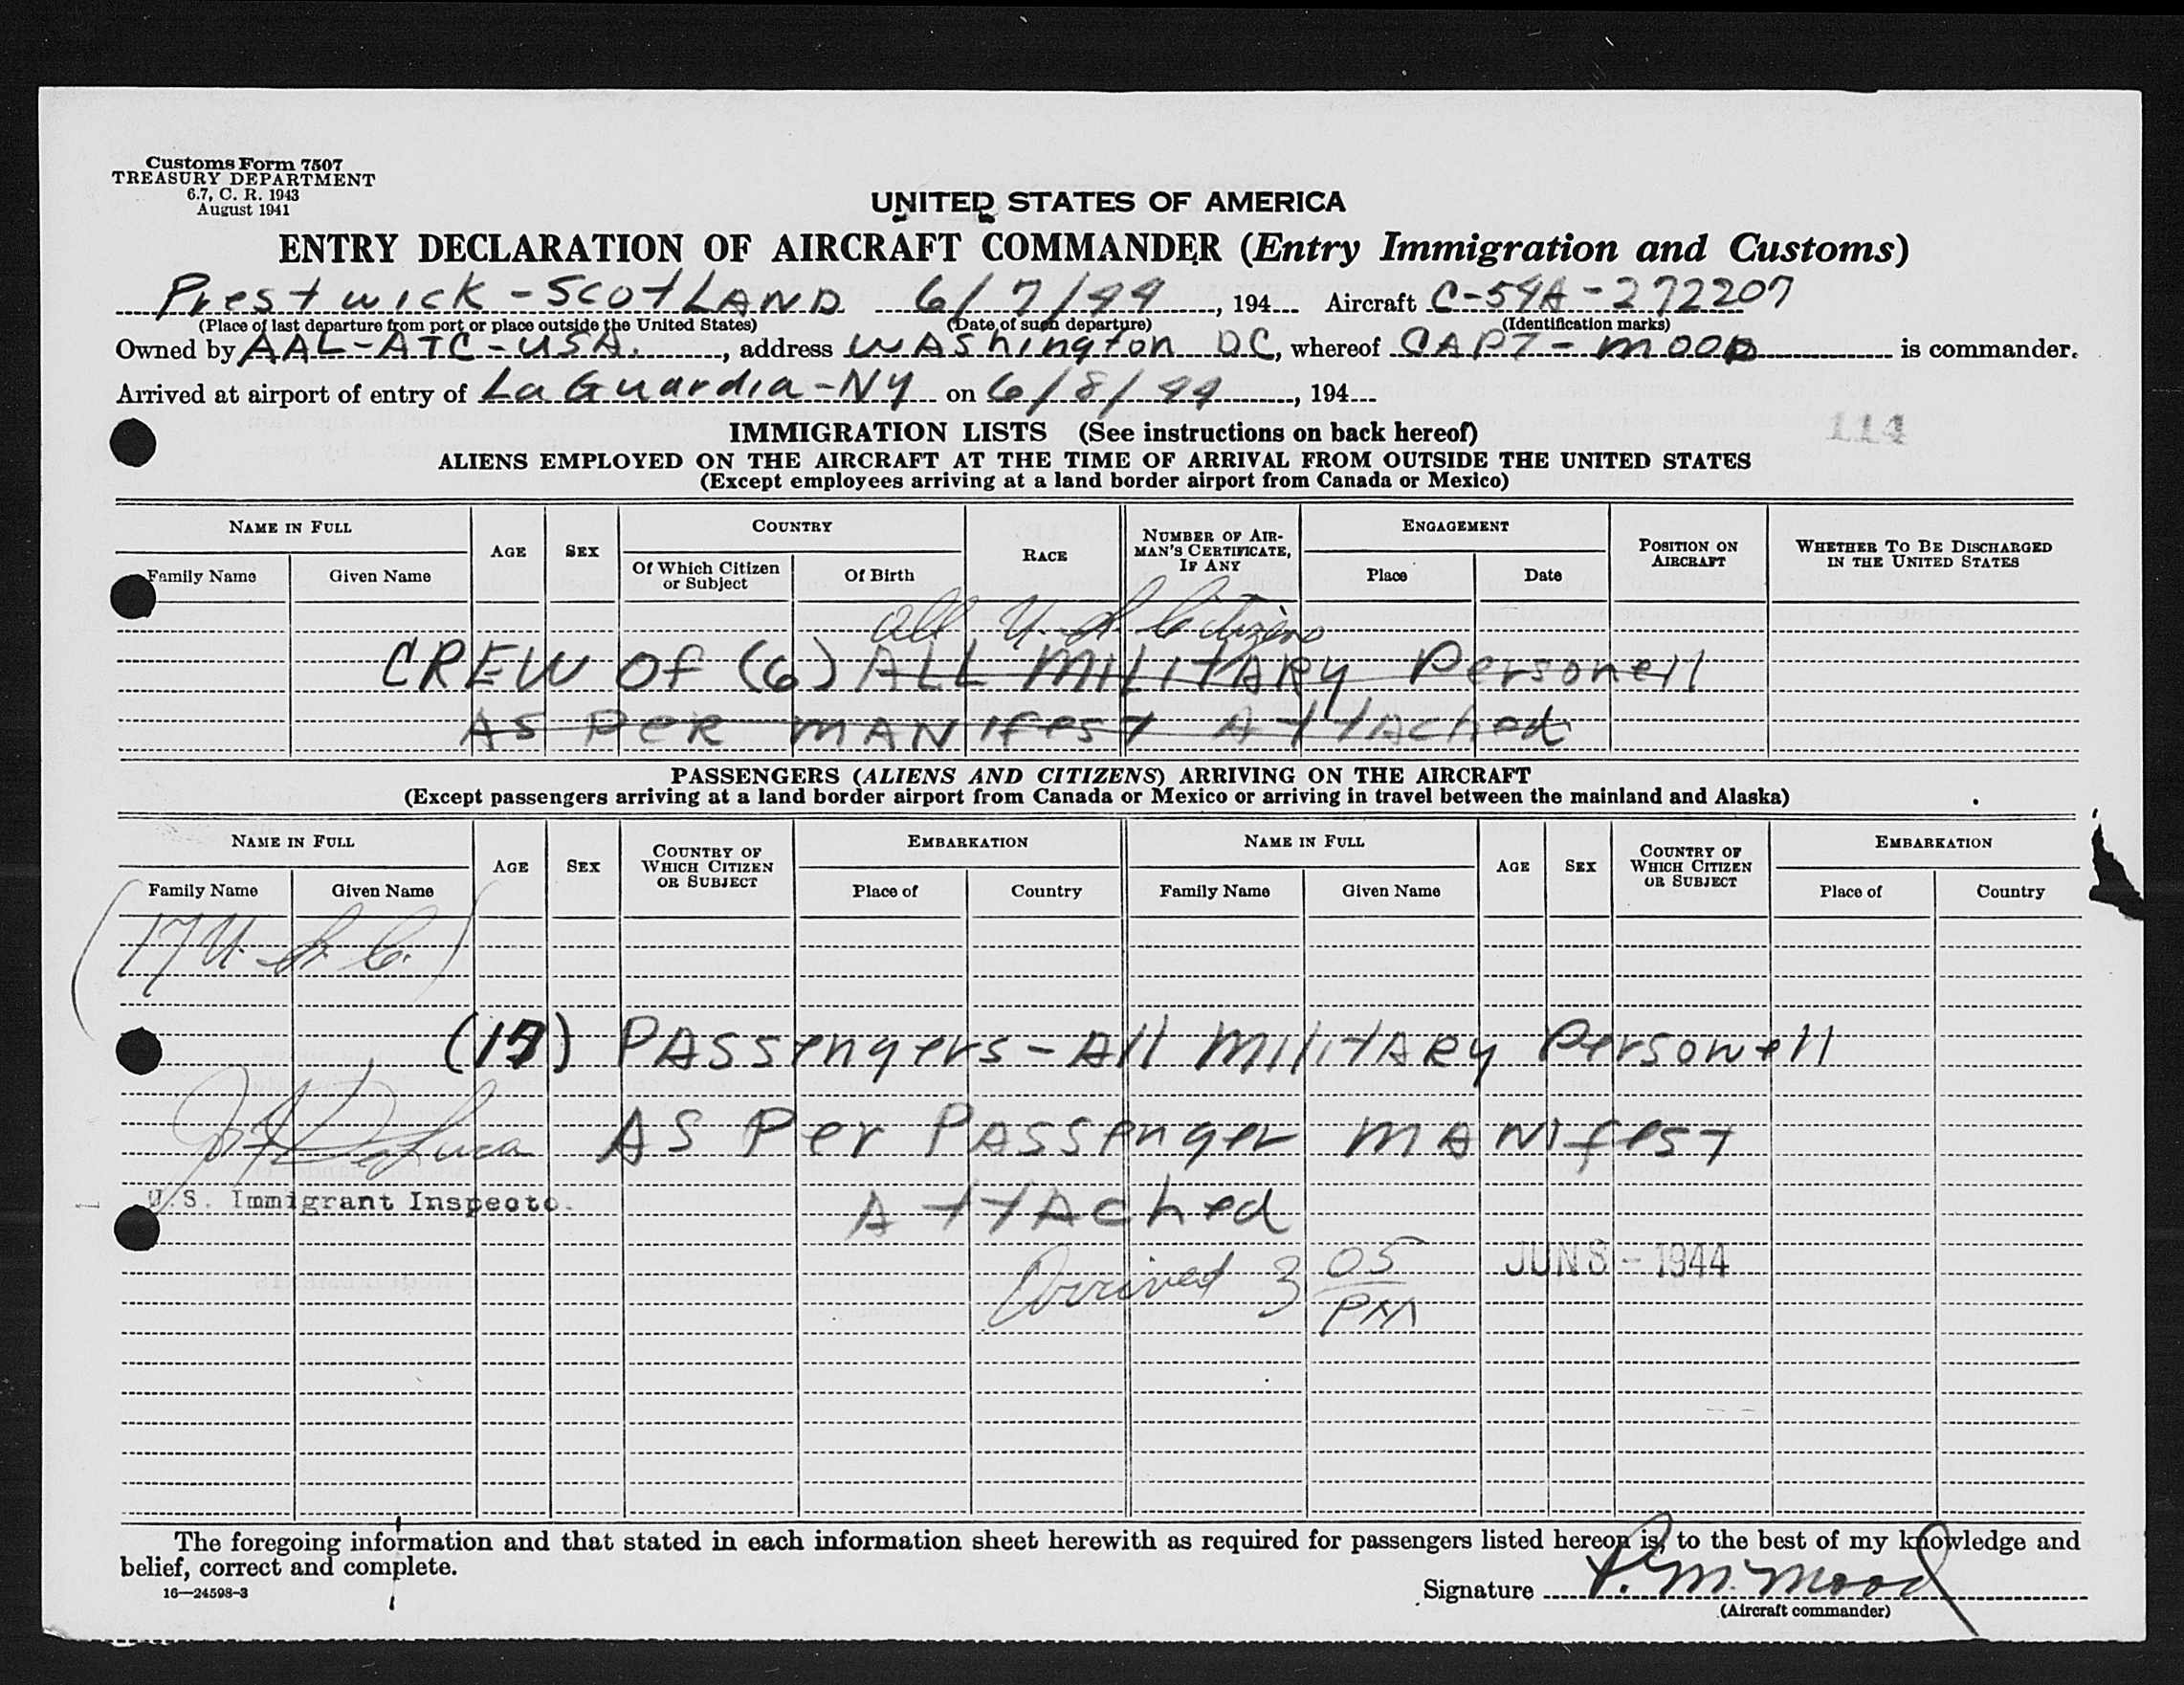 Customs Form 7507
TREASURY DEPARTMENT
6.7, C. R. 1943
August 1941
UNITED STATES OF AMERICA
ENTRY DECLARATION OF AIRCRAFT COMMANDER (Entry Immigration and Customs)
Prestwick - Scotland 6/7/44, 194 Aircraft C-54A-272207
(Place of last departure from port or place outside the United States) (Date of such departure) (Identification marks)
Owned by AAL-ATC-USA., address Washington DC, whereof CAPT - MOOD is commander.
Arrived at airport of entry of La Guardia - NY on 6/8/44, 194
114
IMMIGRATION LISTS (See instructions on back hereof)
ALIENS EMPLOYED ON THE AIRCRAFT AT THE TIME OF ARRIVAL FROM OUTSIDE THE UNITED STATES
(Except employees arriving at a land border airport from Canada or Mexico)
NAME IN FULL AGE SEX COUNTRY RACE NUMBER OF AIRMAN'S CERTIFICATE, IF ANY ENGAGEMENT POSITION ON AIRCRAFT WHETHER TO BE DISCHARGED IN THE UNITED STATES
Family Name Given Name Of Which Citizen or Subject Of Birth Place Date
all U. S. Citizens
CREW Of (6) ALL MILITARY Personell
AS PER MANIfest Attached
PASSENGERS (ALIENS AND CITIZENS) ARRIVING ON THE AIRCRAFT
(Except passengers arriving at a land border airport from Canada or Mexico or arriving in travel between the mainland and Alaska)
NAME IN FULL AGE SEX COUNTRY OF WHICH CITIZEN OR SUBJECT EMBARKATION NAME IN FULL AGE SEX COUNTRY OF WHICH CITIZEN OR SUBJECT EMBARKATION
Family Name Given Name Place of Country Family Name Given Name Place of Country
(17 U. S. C.)
(17) Passengers - All Military Personell
De Luca AS Per Passenger MANIfest
U.S. Immigrant Inspecto.
Attached
Arrived 3 05 PM JUN 8 - 1944
The foregoing information and that stated in each information sheet herewith as required for passengers listed hereon is, to the best of my knowledge and
belief, correct and complete.
16—24598-3
Signature P. M. Mood
(Aircraft commander)